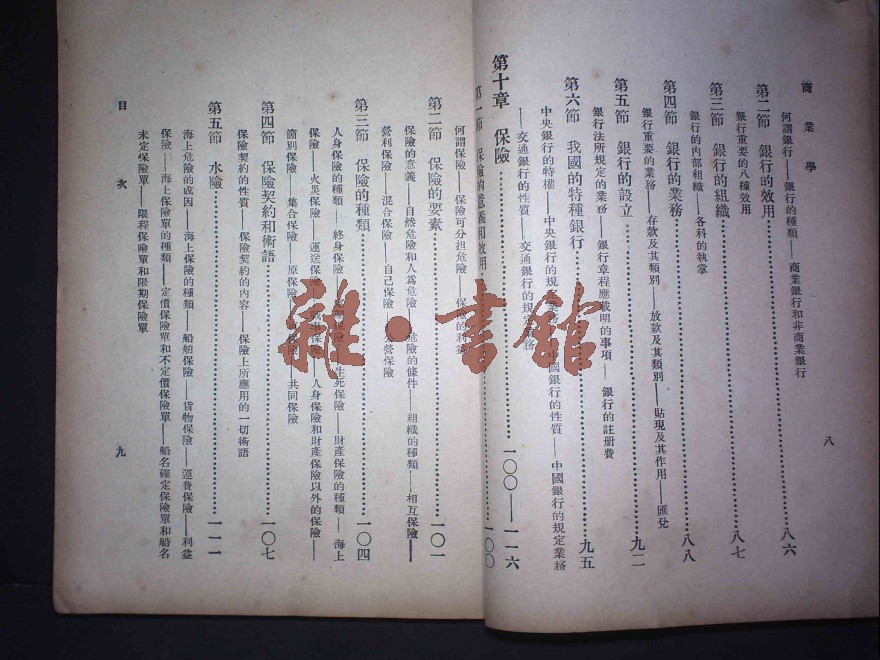 商業學
八
何謂銀行——銀行的種類——商業銀行和非商業銀行
第二節 銀行的效用……八六
銀行重要的八種效用
第三節 銀行的組織……八七
銀行的內部組織——各科的執掌
第四節 銀行的業務……八八
銀行重要的業務——存款及其類別——放款及其類別——貼現及其作用——匯兌
第五節 銀行的設立……九二
銀行法所規定的業務——銀行章程應載明的事項——銀行的註册費
第六節 我國的特種銀行……九五
中央銀行的特權——中央銀行的規定業務——中國銀行的性質——中國銀行的規定業務
——交通銀行的性質——交通銀行的規定業務
第十章 保險……一〇〇——一一六
第一節 保險的意義和效用……一〇〇
何謂保險——保險可分担危險——保險的利益
第二節 保險的要素……一〇一
保險的意義——自然危險和人爲危險——危險的條件——組織的種類——相互保險——
營利保險——混合保險——自己保險——公營保險
第三節 保險的種類……一〇四
人身保險的種類——終身保險——保險——生死保險——財產保險的種類——海上
保險——火災保險——運送保險——保險——人身保險和財產保險以外的保險——
箇別保險——集合保險——原保險——保險——共同保險
第四節 保險契約和術語……一〇七
保險契約的性質——保險契約的內容——保險上所應用的一切術語
第五節 水險……一一一
海上危險的成因——海上保險的種類——船舶保險——貨物保險——運費保險——利益
保險——海上保險單的種類——定價保險單和不定價保險單——船名確定保險單和船名
未定保險單——限程保險單和限期保險單
目次
九
雜·書館